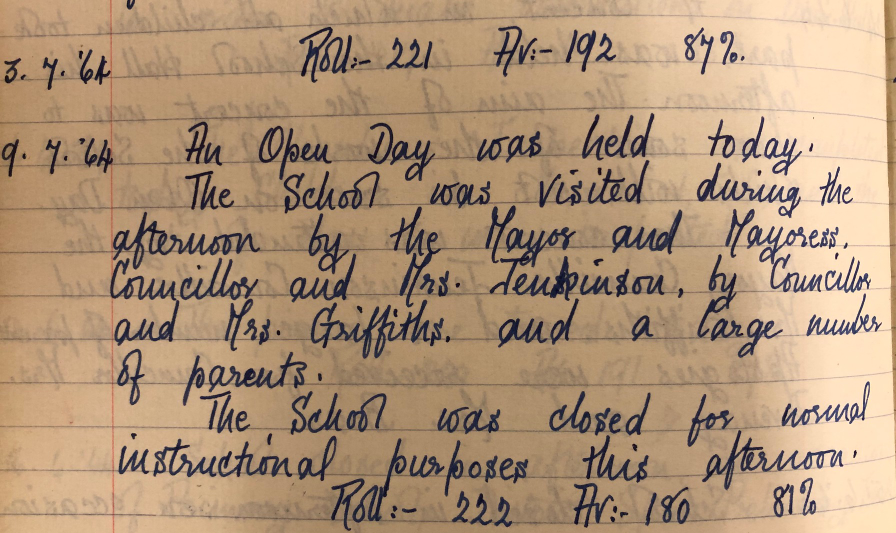 3. 7. '64 Roll:- 221 Av:- 192 87%.
9. 7. '64 An Open Day was held today.
The School was visited during the
afternoon by the Mayor and Mayoress,
Councillor and Mrs. Jenkinson, by Councillor
and Mrs. Griffiths, and a large number
of parents.
The School was closed for normal
instructional purposes this afternoon.
Roll:- 222 Av:- 180 81%